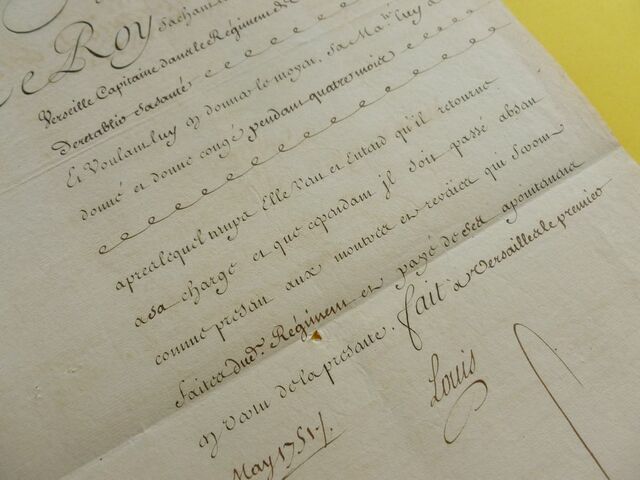 Le Roy sachant
Verseille Capitaine dans le Regiment de
de retablir sa santé
Et Voulant luy en donner le moyen, Sa Ma.té luy a
donné et donne congé pendant quatre mois
apres lequel temps Elle veut et Entend qu'il retourne
a sa charge et que cependant il soit passé absent
comme present aux montres et reveües qui seront
faites dud.t Régiment et payé de ses apointemens
en vertu de la presente. fait a Versailles le premier
May 1751./.
Louis